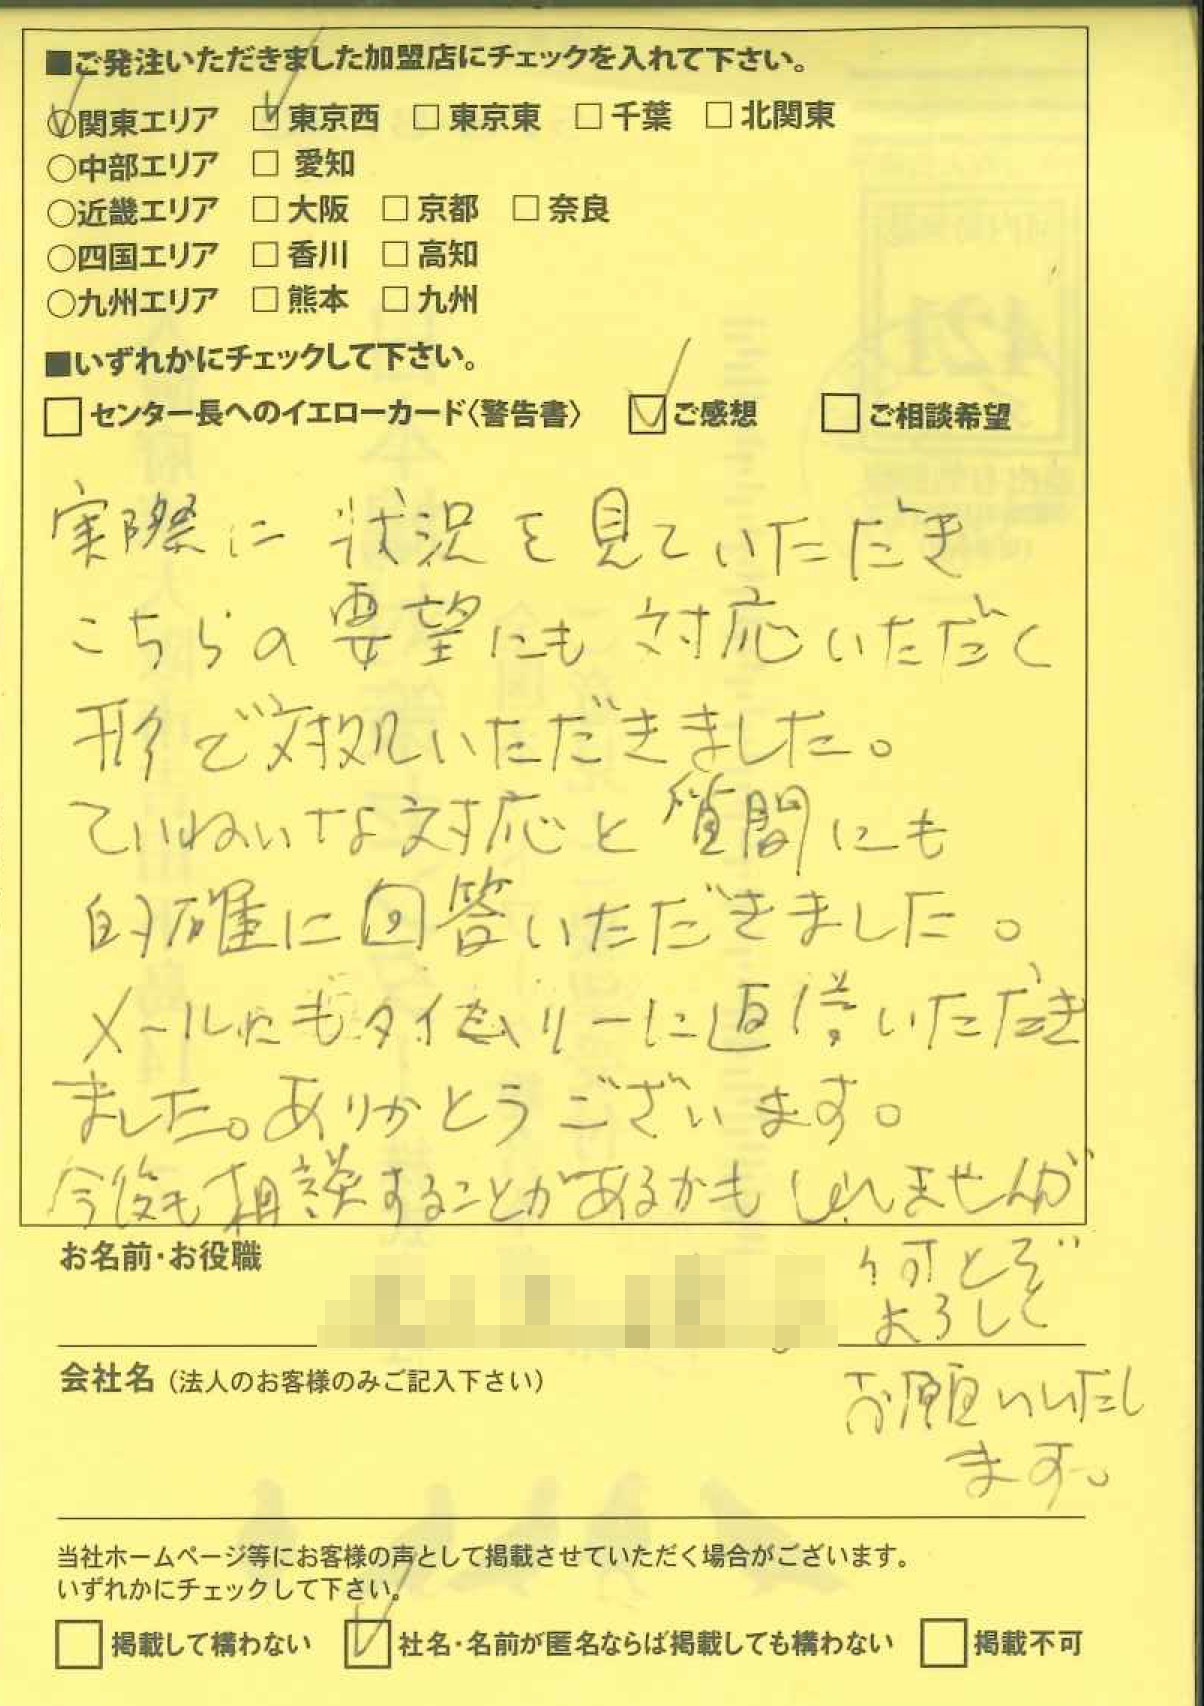 ■ご発注いただきました加盟店にチェックを入れて下さい。
○関東エリア □東京西 □東京東 □千葉 □北関東
○中部エリア □愛知
○近畿エリア □大阪 □京都 □奈良
○四国エリア □香川 □高知
○九州エリア □熊本 □九州
■いずれかにチェックして下さい。
□センター長へのイエローカード〈警告書〉 □ご感想 □ご相談希望
実際に状況を見ていただき
こちらの要望にも対応いただく
形で対処いただきました。
ていねいな対応と質問にも
的確に回答いただきました。
メールにもタイムリーに返信いただき
ました。ありがとうございます。
今後も相談することがあるかもしれませんが
何とぞ
よろしく
お願いいたし
ます。
お名前・お役職
会社名（法人のお客様のみご記入下さい）
当社ホームページ等にお客様の声として掲載させていただく場合がございます。
いずれかにチェックして下さい。
□掲載して構わない □社名・名前が匿名ならば掲載しても構わない □掲載不可